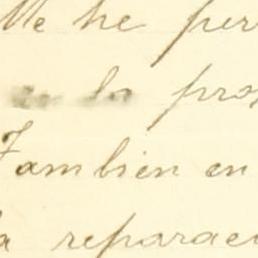 Me he per
la pro
Tambien en
la reparaci